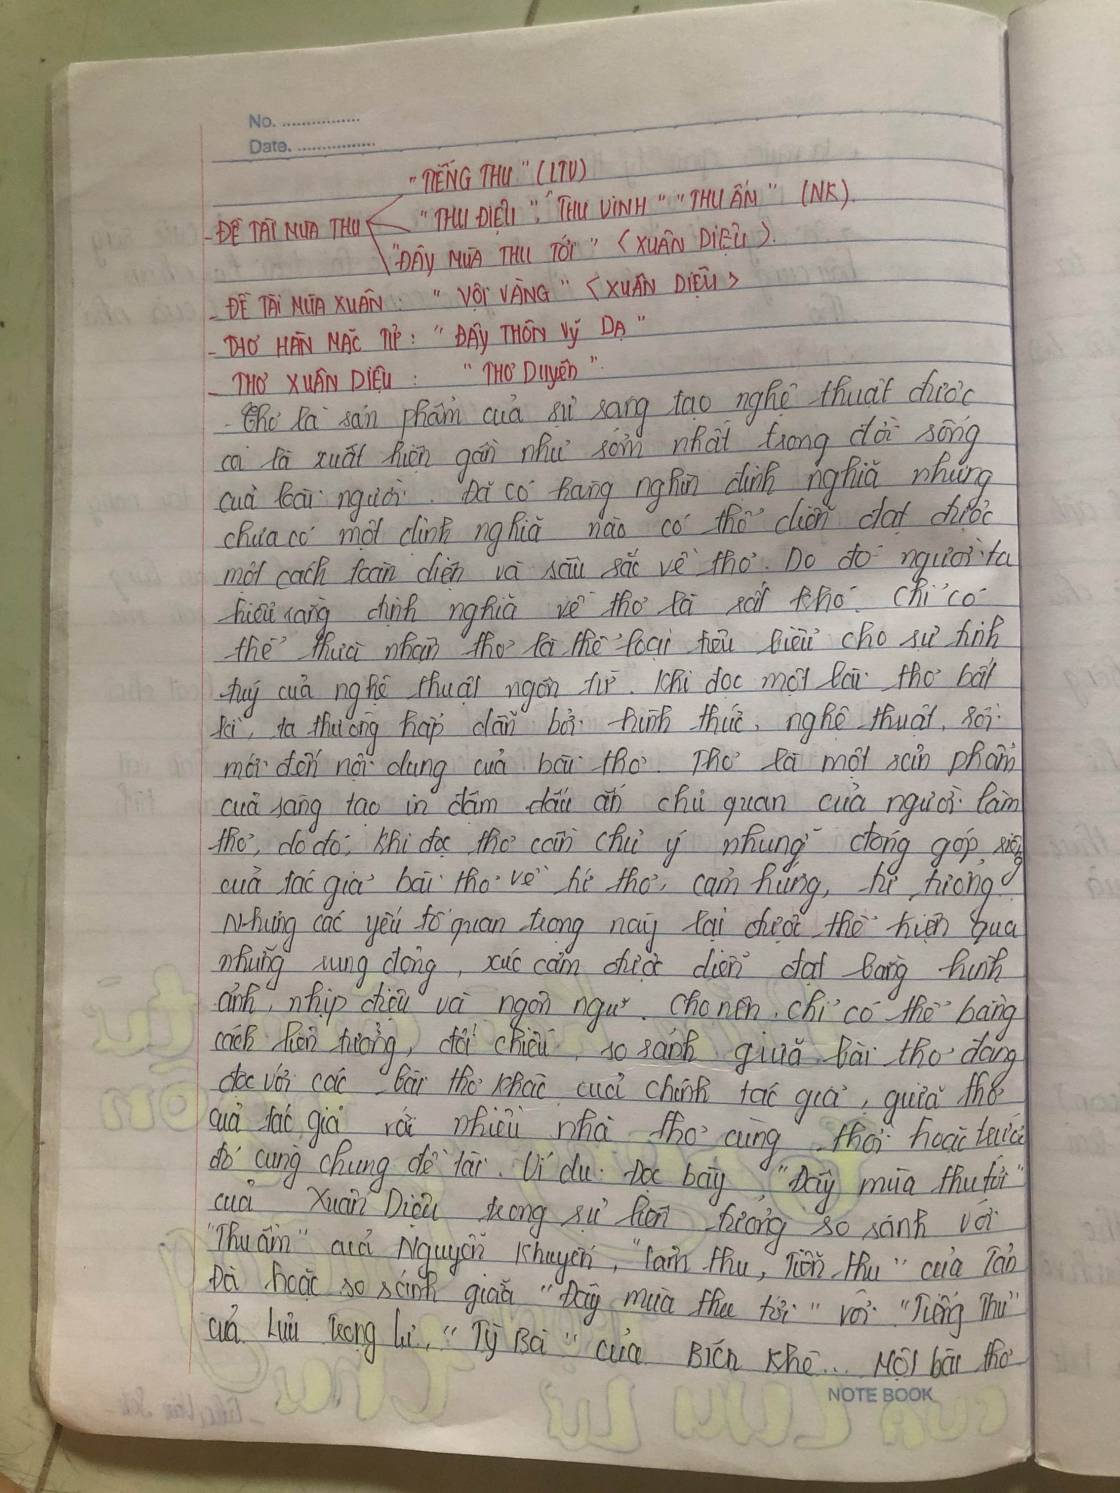 No. ................
Date. ................
"TIẾNG THU" (LTV)
- ĐỀ TÀI MÙA THU "THU ĐIẾU", "THU VỊNH" "THU ẨM" (NK).
"ĐÂY MÙA THU TỚI" <XUÂN DIỆU>.
- ĐỀ TÀI MÙA XUÂN: "VỘI VÀNG" <XUÂN DIỆU>
- THƠ HÀN MẶC TỬ: "ĐÂY THÔN VỸ DẠ"
- THƠ XUÂN DIỆU: "THƠ Duyên"
- Thơ là sản phẩm của sự sáng tạo nghệ thuật được
coi là xuất hiện gần như sớm nhất trong đời sống
của loài người. Đã có hàng nghìn định nghĩa nhưng
chưa có một định nghĩa nào có thể diễn đạt được
một cách toàn diện và sâu sắc về thơ. Do đó người ta
hiểu rằng định nghĩa về thơ là rất khó. Chỉ có
thể thừa nhận thơ là thể loại tiêu biểu cho sự tinh
tuý của nghệ thuật ngôn từ. Khi đọc một bài thơ bất
kì, ta thường hấp dẫn bởi hình thức, nghệ thuật, rồi
mới đến nội dung của bài thơ. Thơ là một sản phẩm
của sáng tạo in đậm dấu ấn chủ quan của người làm
thơ, do đó, khi đọc thơ cần chú ý những đóng góp riêng
của tác giả bài thơ về tứ thơ, cảm hứng, tư tưởng.
Nhưng các yếu tố quan trọng này lại được thể hiện qua
những rung động, xúc cảm được diễn đạt bằng hình
ảnh, nhịp điệu và ngôn ngữ. Cho nên, chỉ có thể bằng
cách liên tưởng, đối chiếu, so sánh giữa bài thơ đang
đọc với các bài thơ khác của chính tác giả, giữa thơ
của tác giả với nhiều nhà thơ cùng thời hoặc trước
đó cùng chung đề tài. Ví dụ: Đọc bày "Đây mùa thu tới"
của Xuân Diệu trong sự liên tưởng so sánh với
"Thu ẩm" của Nguyễn Khuyến, "Cảm thu, Tiễn thu" của Tản
Đà hoặc so sánh giữa "Đây mùa thu tới" với "Tiếng Thu"
của Lưu Trọng Lư, "Tỳ Bà" của Bích Khê... Một bài thơ
NOTE BOOK